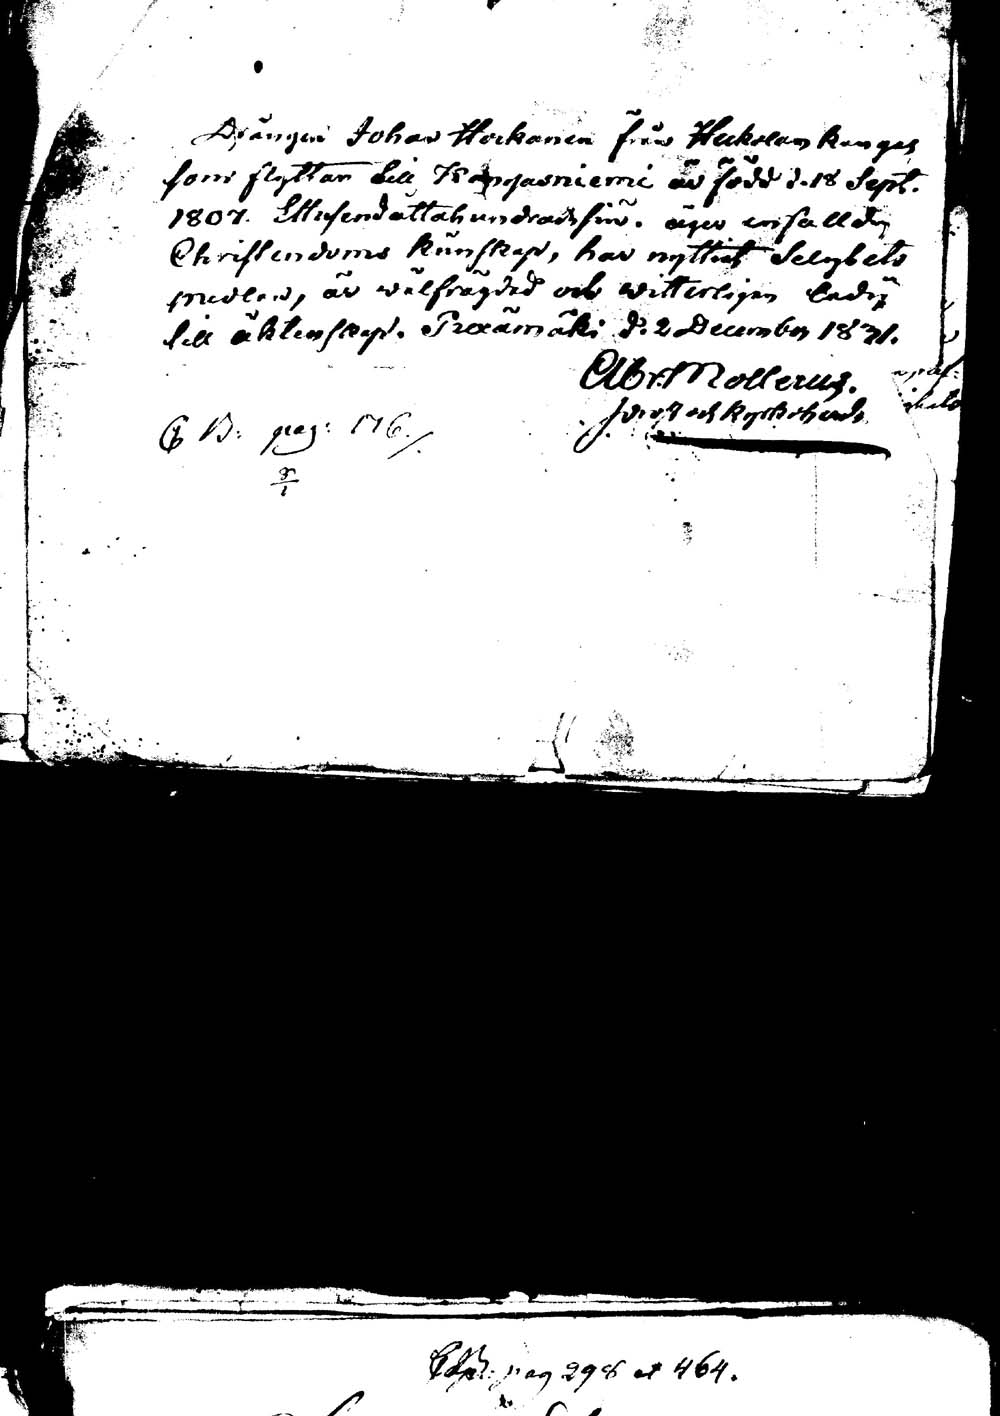 Drängen Johan Hockanen från Heikolankangas
som flyttar till Kangasniemi är född d. 18 Sept.
1807. Ettusendåttahundradesju. äger enfalldig
Christendoms kunskap, har nyttiat Salighets
medlen, är wälfrägdad och witterligen ledig
till äktenskap. d. 2 December 1831.
Abr. Mollerus.
C B: pag: 176.
8/1
pag 298 et 464.